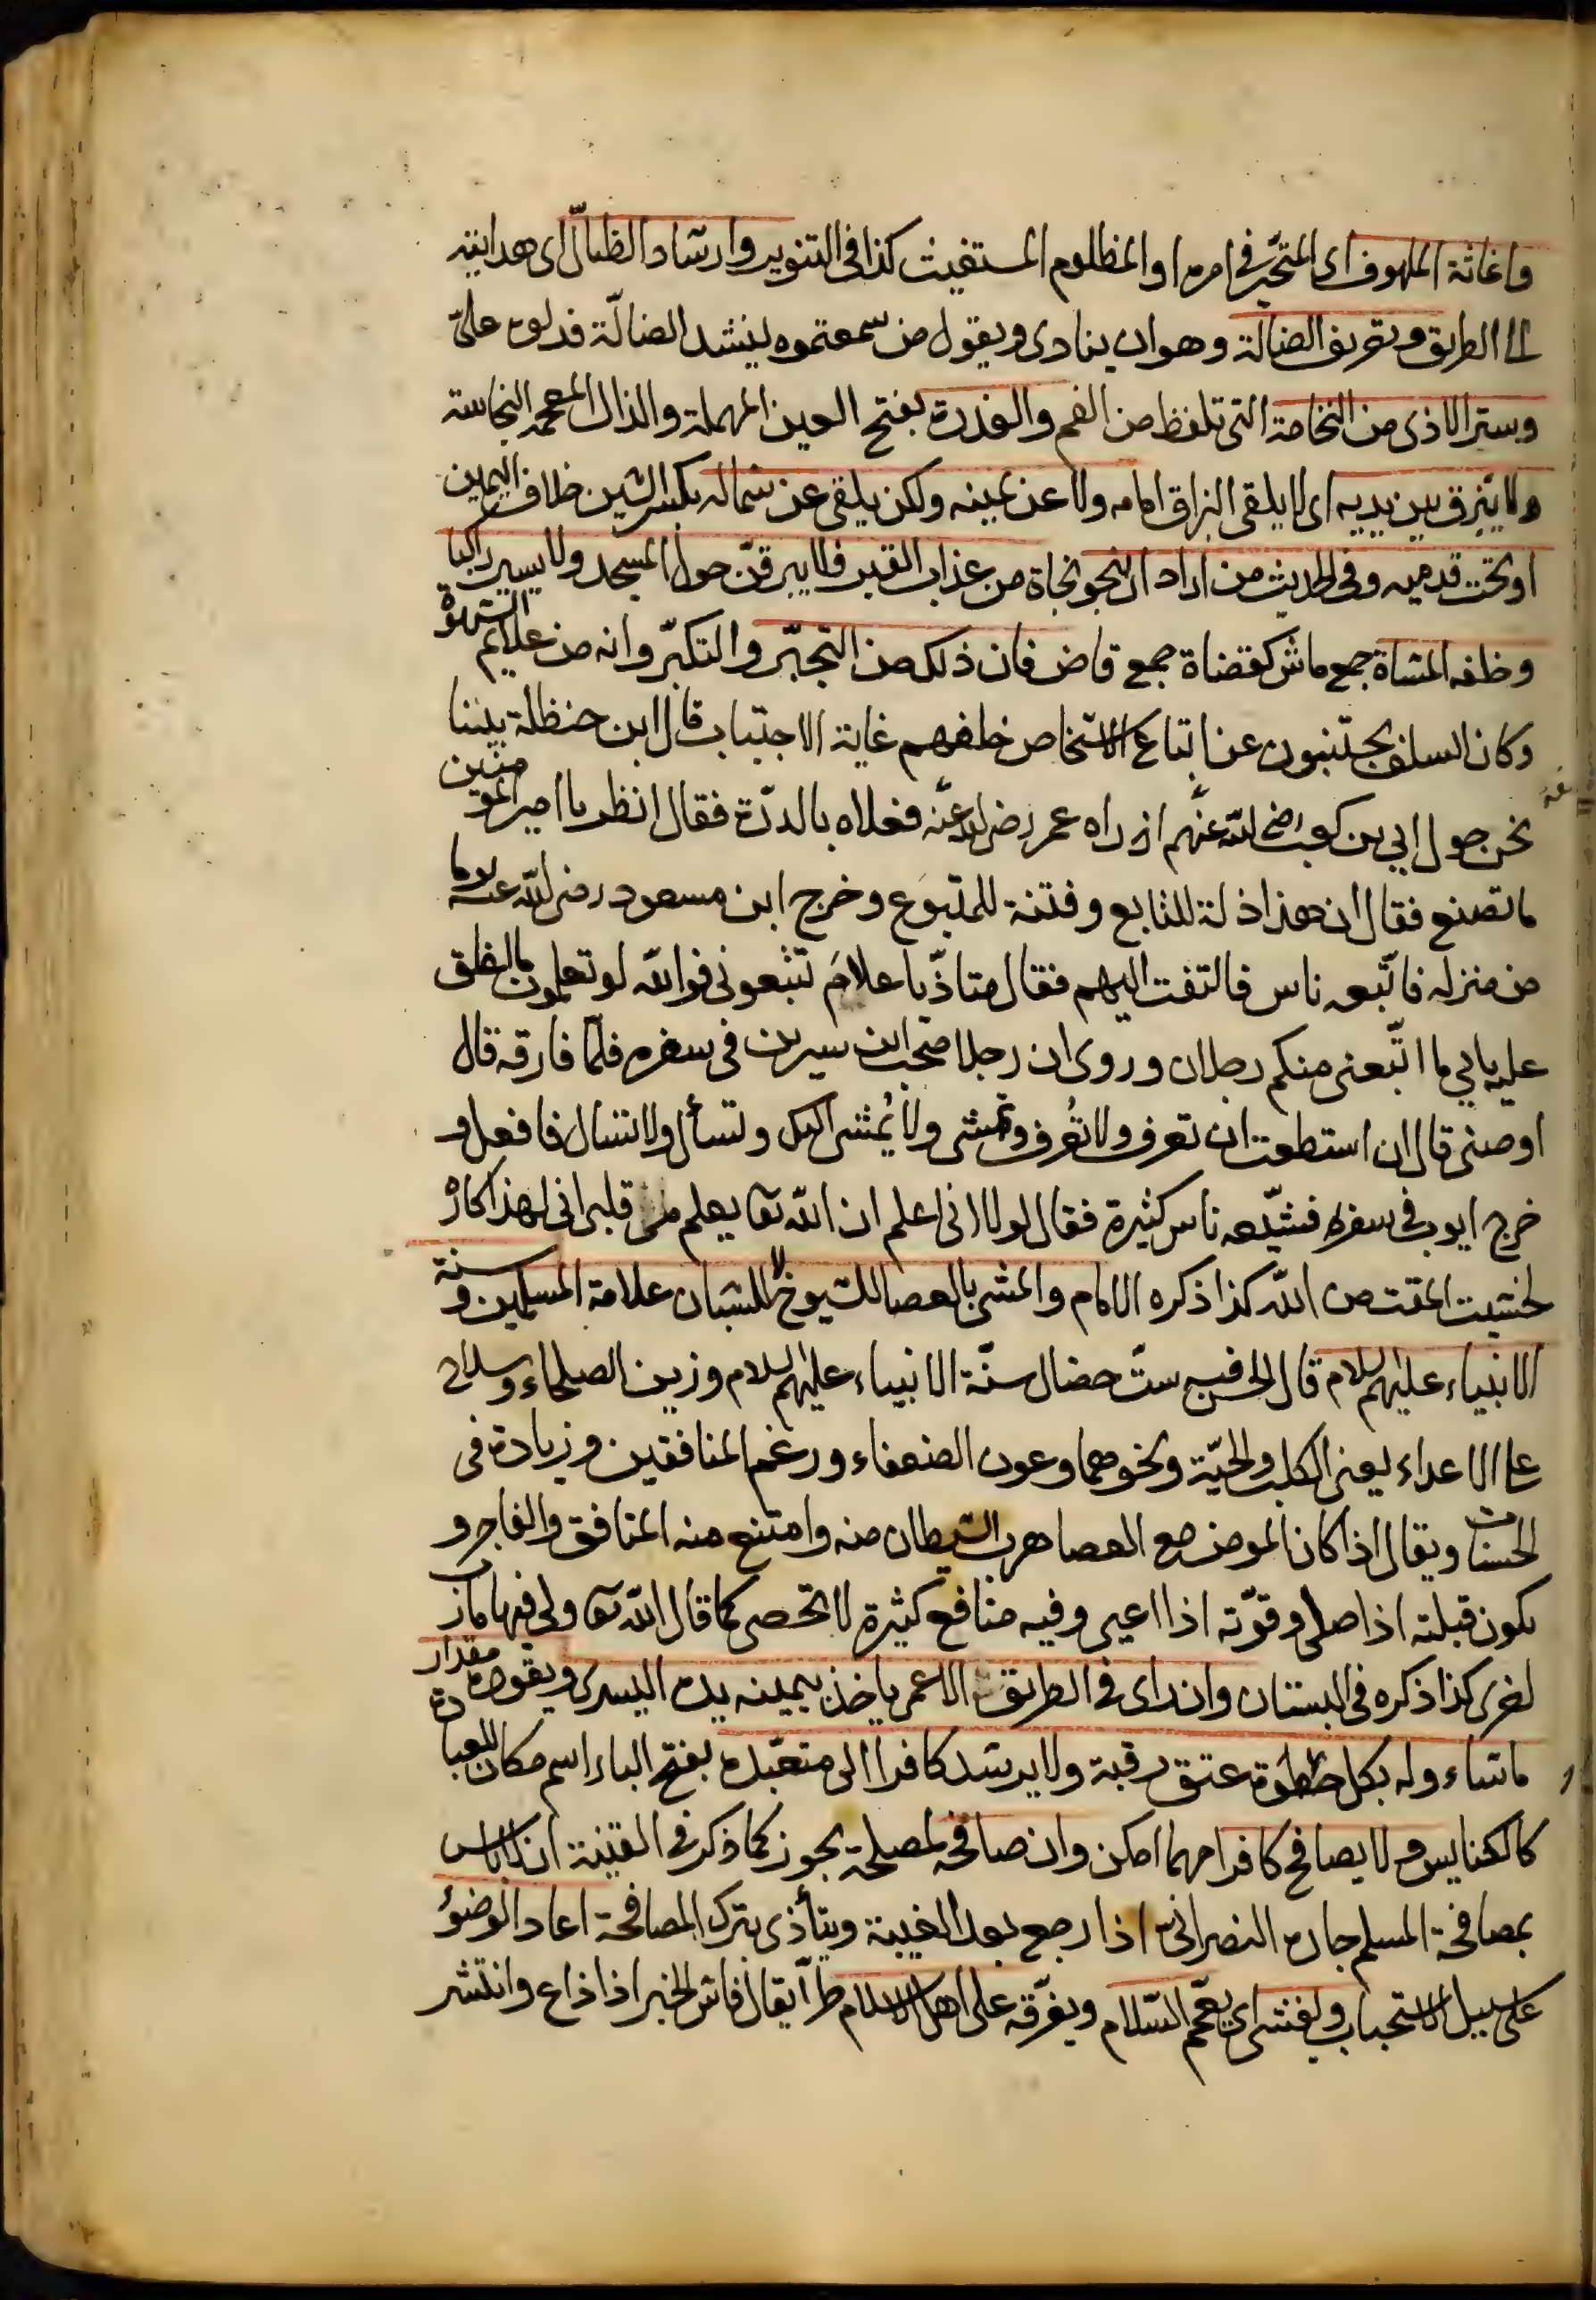 واغاثة الملهوف اى المتحيّر فى امره او المظلوم المستغيث كذا فى التنوير وارشاد الظالّ اى هدايته
الى الطريق وتعريف الضالّة وهو ان ينادى ويقول من سمعتموه ينشد الضالّة فدلوه علىّ
وستر الاذى من النخامة التى تلفظ من الفم والعذرة بفتح العين المهملة والذال المعجمة النجاسة
ولا يبزق بين يديه اى لا يلقى البزاق امامه ولا عن يمينه ولكن يلقى عن شماله بكسر الشين خلاف اليمين
او تحت قدميه وفى الحديث من اراد ان ينجو نجاة من عذاب القبر فلا يبرقنّ حول المسجد ولا يسير راكبا
وخلفه المشاة جمع ماش كقضاة جمع قاض فان ذلك من التجبّر والتكبّر وانه من علايم الشهوة
وكان السلف يجتنبون عن اتباع الاشخاص خلفهم غاية الاجتباب قال ابن حنظلة بيننا
نحن حول ابي بن كعب رضى الله عنهم اذ راه عمر رضى الله عنه فعلاه بالدرّة فقال انظر يا امير المومنين
ما تصنع فقال ان هذا ذلة للتابع وفتنة للمتبوع وخرج ابن مسعود رضى الله عنه يوما
من منزله فاتّبعه ناس فالتفت اليهم فقال متاذّيا علامَ تتبعونى فوالله لو تعلمون ما اغلق
عليه بابي ما اتّبعنى منكم رجلان وروى ان رجلا صحب ابن سيرين فى سفره فلمّا فارقه قال
اوصنى قال ان استطعت ان تعرف ولا تُعرف وتمشى ولا يُمشى اليك وتسأل ولا تسال فافعل و
خرج ايوب فى سفره فشيّعه ناس كثيرة فقال لولا انى اعلم ان الله تعا يعلم من قلبى انى لهذا كاره
لخشيت المقت من الله كذا ذكره الامام والمشى بالعصا للشيوخ لا للشبان علامة المسلمين وسنة
الانبياء عليهم السلام قال الحسن فيه ستّ خصال سنّة الانبياء عليهم السلام وزين الصلحاء وسلاح
على الاعداء يعنى الكلب والحيّة ونحوهما وعون الضعفاء ورغم المنافقين وزيادة فى
الحسنات ويقال اذا كان المومن مع العصا هرب الشيطان منه وامتنع منه المنافق والفاجر و
يكون قبلته اذا صلى وقوّته اذا اعيى وفيه منافع كثيرة لا تحصى كما قال الله تعا ولى فيها مارب
اخرى كذا ذكره فى البستان وان راى فى الطريق الاعمى ياخذ بيمينه يده اليسرى ويقوده مقدار
ما شاء وله بكل خطوة عتق رقبة ولا يرشد كافرا الى متعبّده بفتح الباء اسم مكان للعبادة
كالكنايس ولا يصافح كافرا مهما امكن وان صافحه لمصلحة يجوز كما ذكر فى القنية انه لا باس
بمصافحة المسلم جاره النصرانىّ اذا رجع بعد الغيبة ويتأذى بترك المصافحة اعاد الوضوُ
على سبيل الاستحباب ويفشى اى يعمّم السّلام ويفرّقه على اهل الاسلام طرّا يقال فاش الخبر اذا ذاع وانتشر